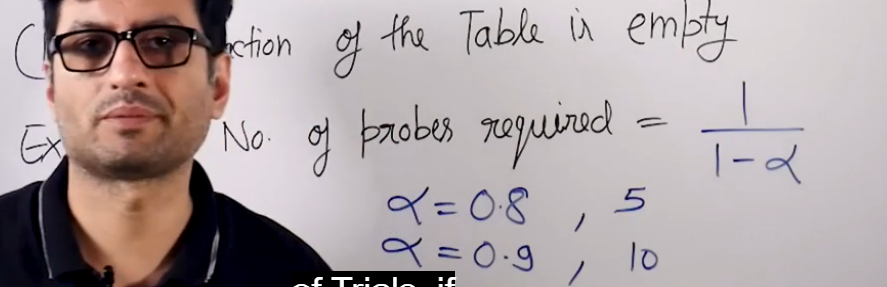 of the Table is empty
No. of probes required = 1/(1-α)
α = 0.8 , 5
α = 0.9 , 10
of Trials, if